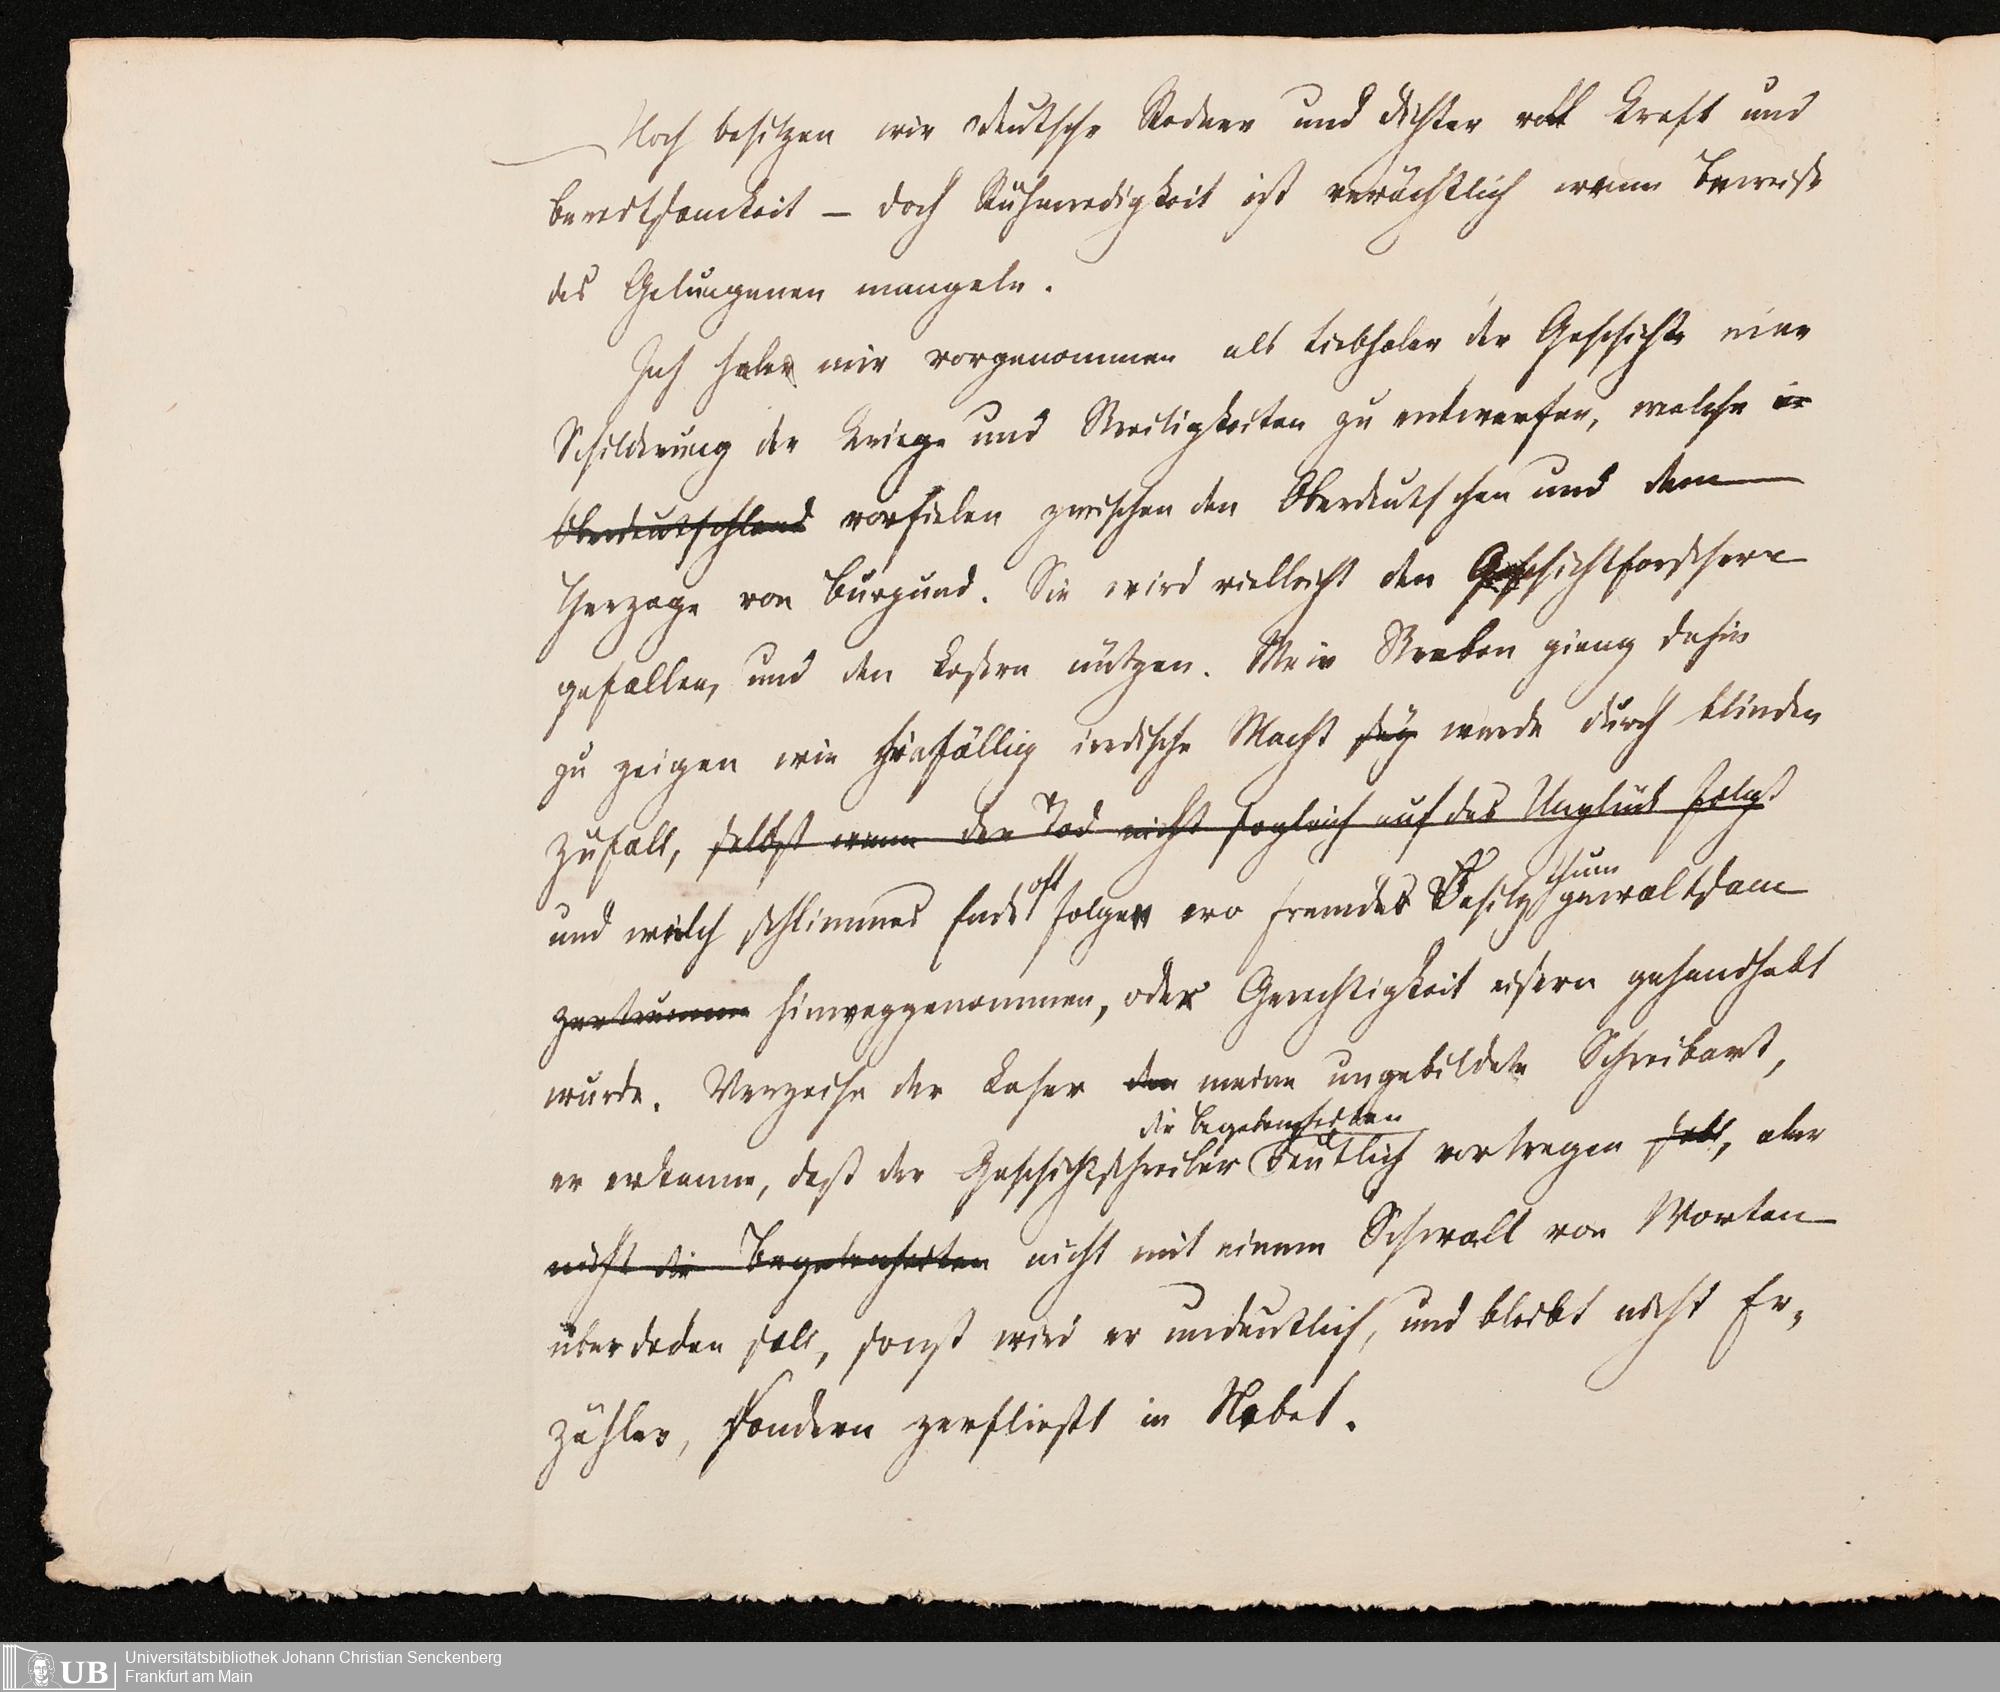 Noch besitzen wir deutsche Redner und Dichter voll Kraft und
Beredtsamkeit – doch Ruhmredigkeit ist verächtlich wenn Beweise
des Gelungenen mangeln.
Ich habe mir vorgenommen als Liebhaber der Geschichte eine
Schilderung der Kriege und Streitigkeiten zu entwerfen, welche in
Oberdeutschland vorfielen zwischen den Oberdeutschen und dem
Herzoge von Burgund. Sie wird vielleicht den Geschichtforschern
gefallen, und den Lesern nützen. Mein Streben gieng dahin
zu zeigen wie hinfällig irdische Macht sey werde durch blinden
Zufall, selbst wenn der Tod nicht sogleich auf das Unglück folgt
und welch schlimmes Ende oft folge wo fremdes Besitzthum gewaltsam
hinweggenommen, oder Gerechtigkeit eisern gehandhabt
wurde. Verzeihe der Leser meine ungebildete Schreibart,
die Begebenheiten
er erkenne, daß der Geschichtschreiber deutlich vortragen soll, aber
nicht die Begebenheiten nicht mit einem Schwall von Worten
überladen soll, sonst wird er undeutlich, und bleibt nicht Er-
zähler, sondern zerfliesst in Nebel.
UB Universitätsbibliothek Johann Christian Senckenberg
Frankfurt am Main